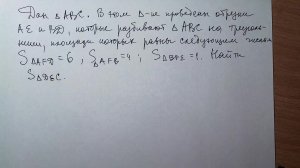 Дан ΔАВС. В этом Δ-ке проведены отрезки
АЕ и BD, которые разбивают ΔАВС на треуголь-
ники, площади которых равны следующим числам
S ΔAFD = 6 , S ΔAFB = 4 ; S ΔBFE = 1. Найти
S ΔDEC.